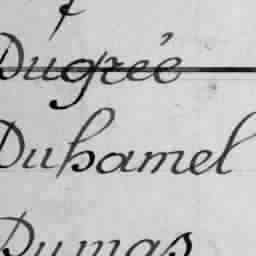 Dugrée
Duhamel
Dumas